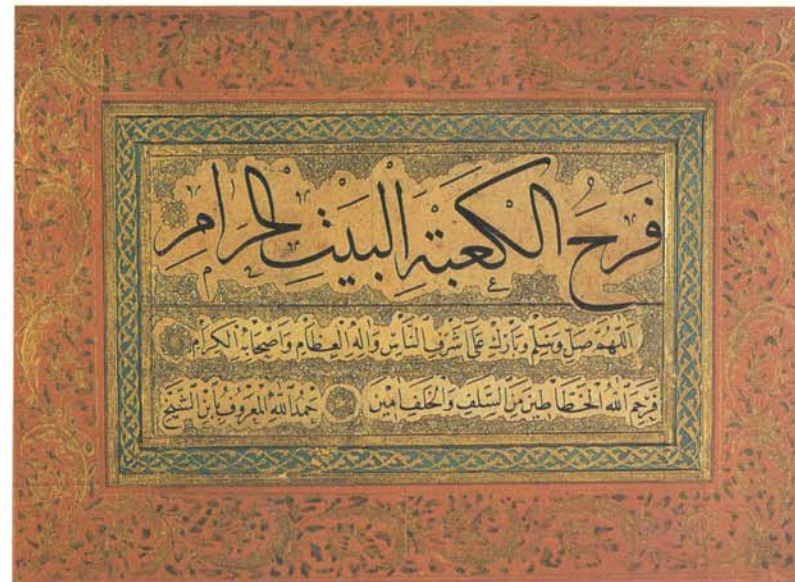 فَرَحَ الكَعْبَةِ البَيْتِ الحَرَامِ
اللهم صل وسلم وبارك على اشرف الناس واله العظام واصحابه الكرام
فرحم الله الخطاطين من السلف والخلف امين حمد الله المعروف بابن الشيخ